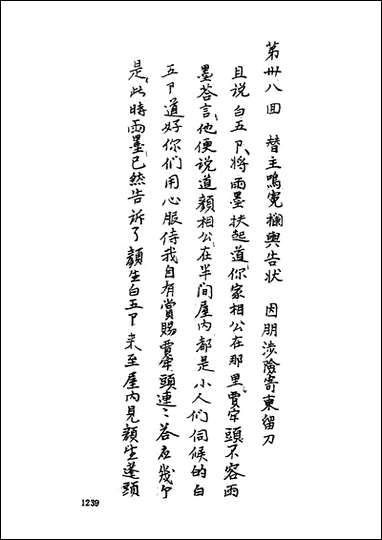 第卅八回　替主鳴冤攔輿告状　因朋涉險寄柬留刀
且说白五卩、将雨墨扶起道、你家相公在那里、賈牢頭不容雨
墨荅言、他便说道顏相公在半间屋内都是小人们伺候的白
五卩道好你们用心服侍我自有賞賜賈牢頭連〻荅应幾个
是、此時雨墨已然告诉了顏生白五卩来至屋内見顏生蓬頭
1239